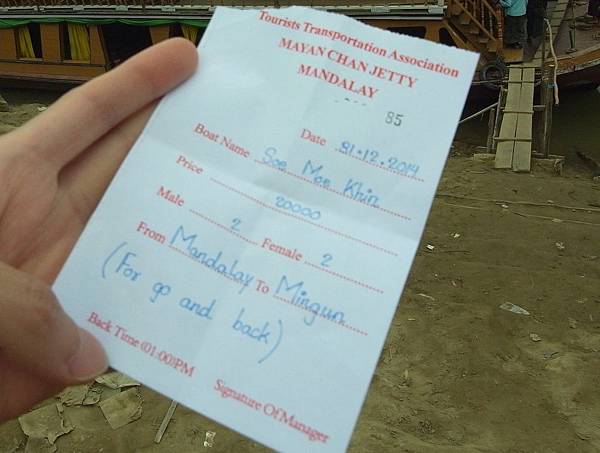 Tourists Transportation Association
MAYAN CHAN JETTY
MANDALAY
85
Date 31.12.2014
Boat Name Soe Moe Khin
Price 20000
Male 2 Female 2
From Mandalay To Mingun
(For go and back)
Back Time (01:00)PM
Signature Of Manager